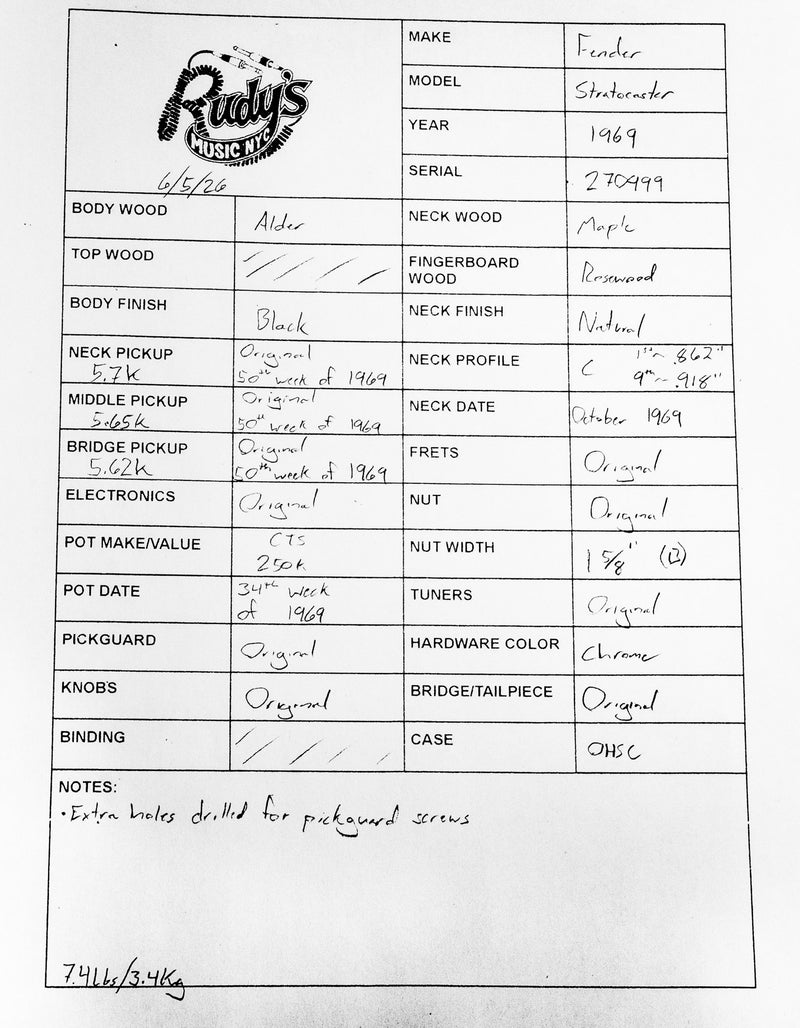 Rudy's
MUSIC NYC
6/5/26
MAKE Fender
MODEL Stratocaster
YEAR 1969
SERIAL 270499
BODY WOOD Alder
NECK WOOD Maple
TOP WOOD
FINGERBOARD WOOD Rosewood
BODY FINISH Black
NECK FINISH Natural
NECK PICKUP 5.7K
Original
50th week of 1969
NECK PROFILE C
1st ~ .862"
9th ~ .918"
MIDDLE PICKUP 5.65K
Original
50th week of 1969
NECK DATE October 1969
BRIDGE PICKUP 5.62K
Original
50th week of 1969
FRETS Original
ELECTRONICS Original
NUT Original
POT MAKE/VALUE CTS
250K
NUT WIDTH 1 5/8" (B)
POT DATE 34th week
of 1969
TUNERS Original
PICKGUARD Original
HARDWARE COLOR Chrome
KNOBS Original
BRIDGE/TAILPIECE Original
BINDING
CASE OHSC
NOTES:
• Extra holes drilled for pickguard screws
7.4Lbs/3.4Kg